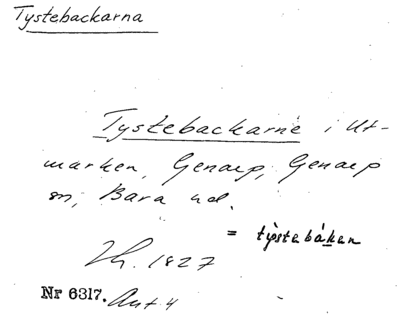 Tystebackarna
Tystebackarne i Ut-
marken, Genarp, Genarp
sn, Bara hd.
= tystebáken
Lh. 1827
Nr 6317. Ant 4